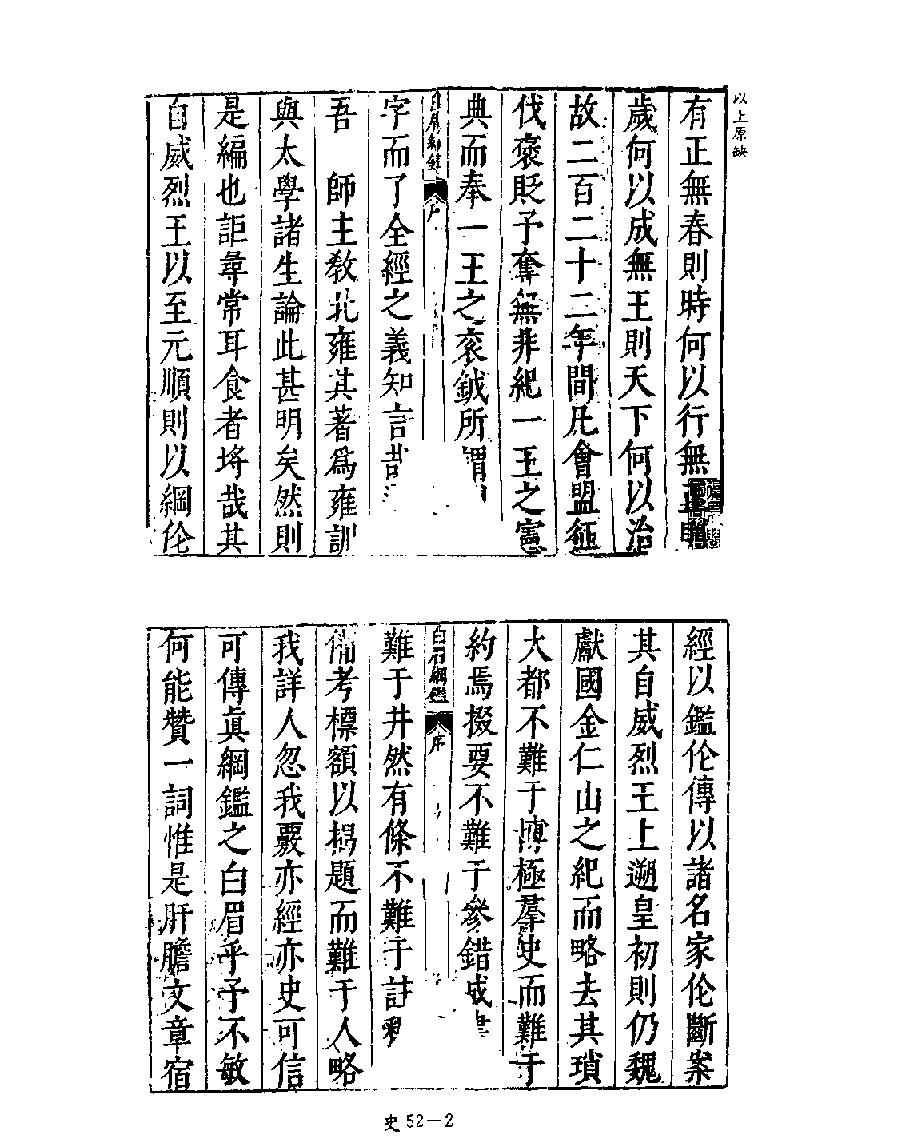 以上原缺
有正無春則時何以行無
歲何以成無王則天下何以治
故二百二十二年間凡會盟征
伐褒貶予奪無非紀一王之憲
典而奉一王之袞鉞所謂
序
字而了全經之義知言哉
吾　師主教北雍其著爲雍訓
與太學諸生論此甚明矣然則
是編也詎尋常耳食者埒哉其
自威烈王以至元順則以綱作
經以鑑作傳以諸名家作斷案
其自威烈王上遡皇初則仍魏
獻國金仁山之紀而略去其瑣
大都不難于博極羣史而難于
約焉掇要不難于參錯成書
白眉綱鑑　序
難于井然有條不難于註
備考標額以揭題而難于人略
我詳人忽我覈亦經亦史可信
可傳眞綱鑑之白眉乎予不敏
何能贊一詞惟是肝膽文章宿
史52－2